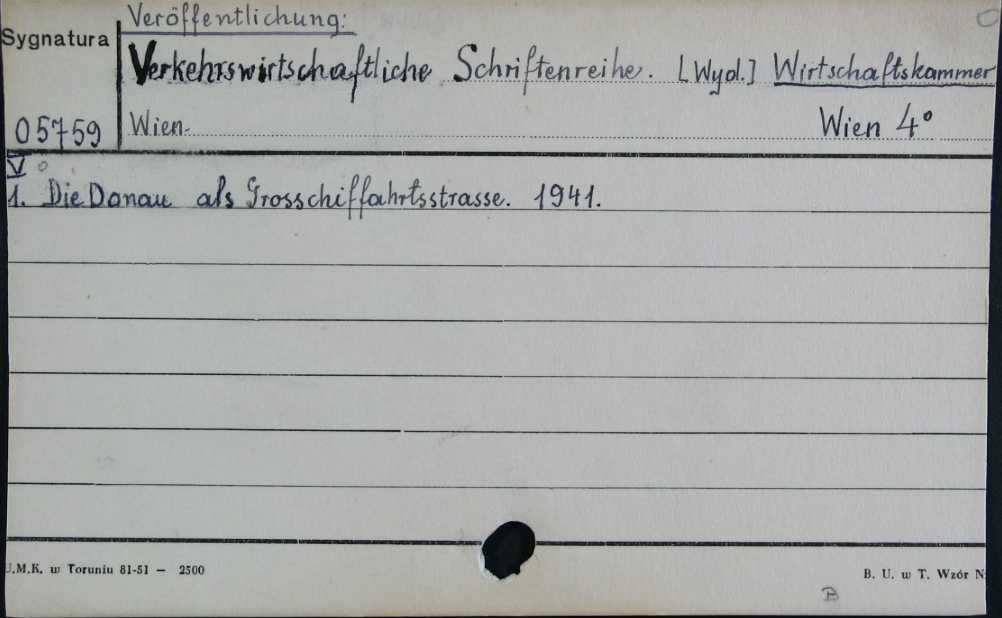 Veröffentlichung:
Sygnatura
Verkehrswirtschaftliche Schriftenreihe. [Wyd.] Wirtschaftskammer
05759 Wien. Wien 4°
V
1. Die Donau als Grosschiffahrtsstrasse. 1941.
U.M.K. w Toruniu 81-51 — 2500
B. U. w T. Wzór N
B